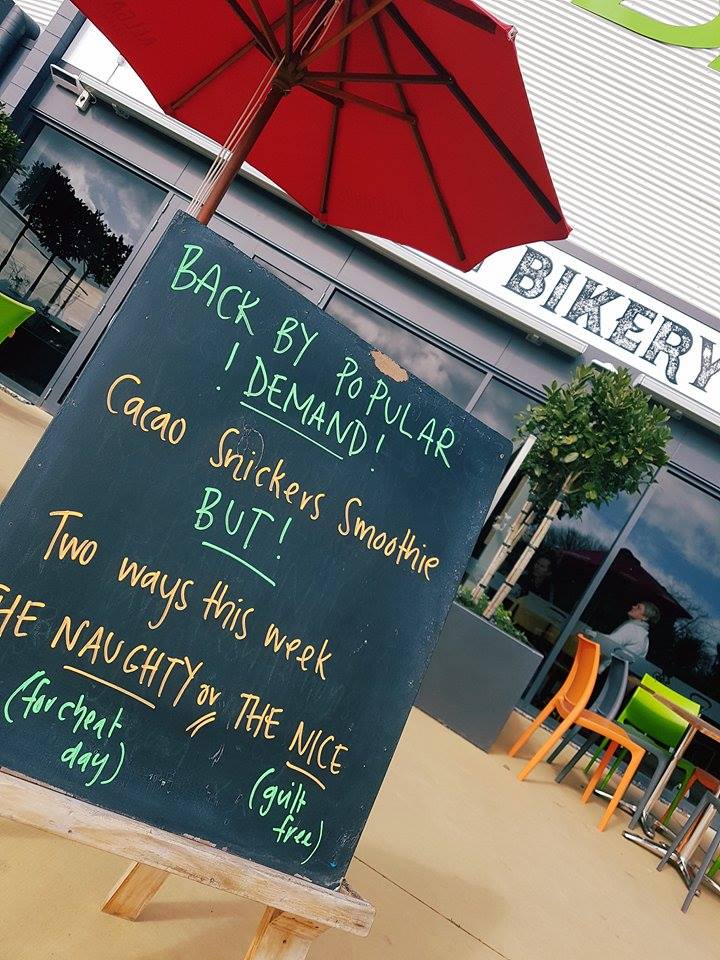 BIKERY
BACK BY POPULAR
! DEMAND!
Cacao Snickers Smoothie
BUT!
Two ways this week
THE NAUGHTY or THE NICE
(for cheat
day)
(guilt
free)